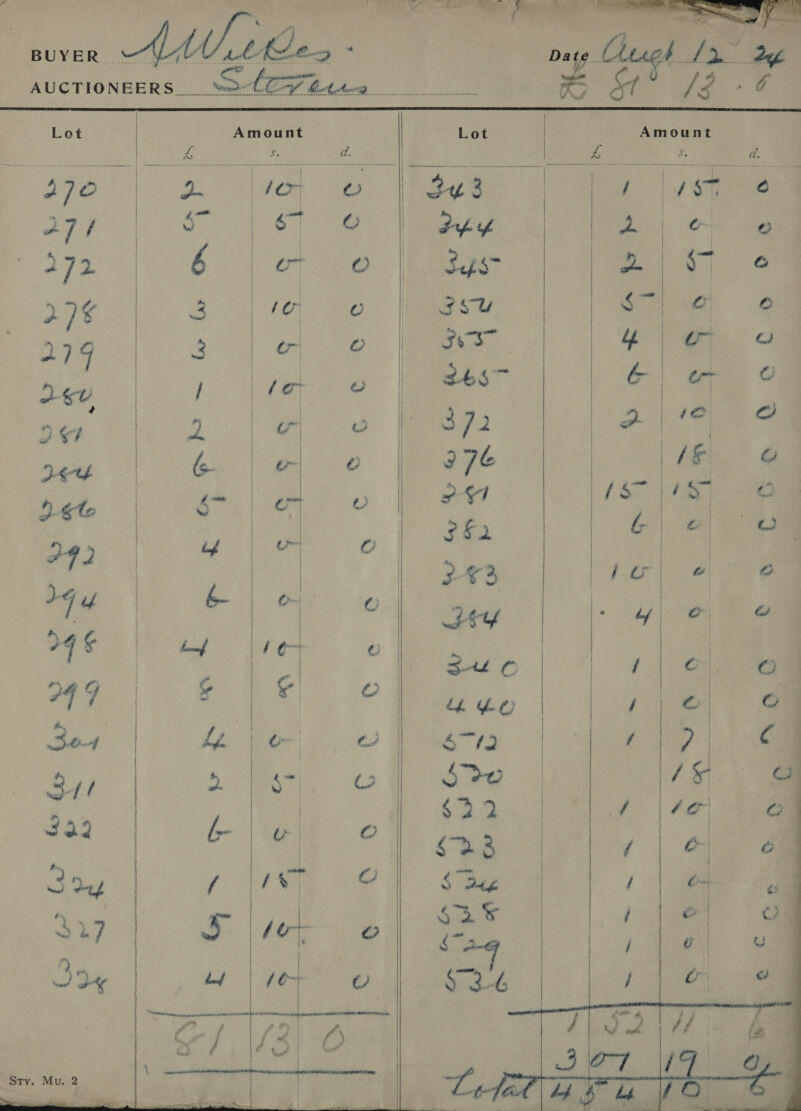 BUYER A W Wilkes
Date Augt 12 24
AUCTIONEERS Stevens
12 . 6
Lot Amount Lot Amount
£ s. d. £ s. d.
270 2 10 0
271 5 5 0
272 6 0 0
278 3 10 0
279 3 0 0
280 1 10 0
281 2 0 0
284 6 0 0
286 5 0 0
292 4 0 0
294 6 0 0
298 4 10 0
299 8 8 0
304 4 0 0
311 2 5 0
322 6 0 0
324 1 15 0
327 5 10 0
328 4 10 0
81 13 0
343 1 15 0
344 2 0 0
345 2 5 0
354 5 0 0
355 4 0 0
365 6 0 0
372 2 10 0
376 18 0
381 15 15 0
382 6 0 0
383 10 0 0
384 4 0 0
1 0 0
440 1 0 0
512 1 7 6
520 18 0
522 1 10 0
523 1 0 0
524 1 0 0
528 1 0 0
529 1 0 0
536 1 0 0
152 11 6
307 19
Total 454 10 6
Sty. Mu. 2